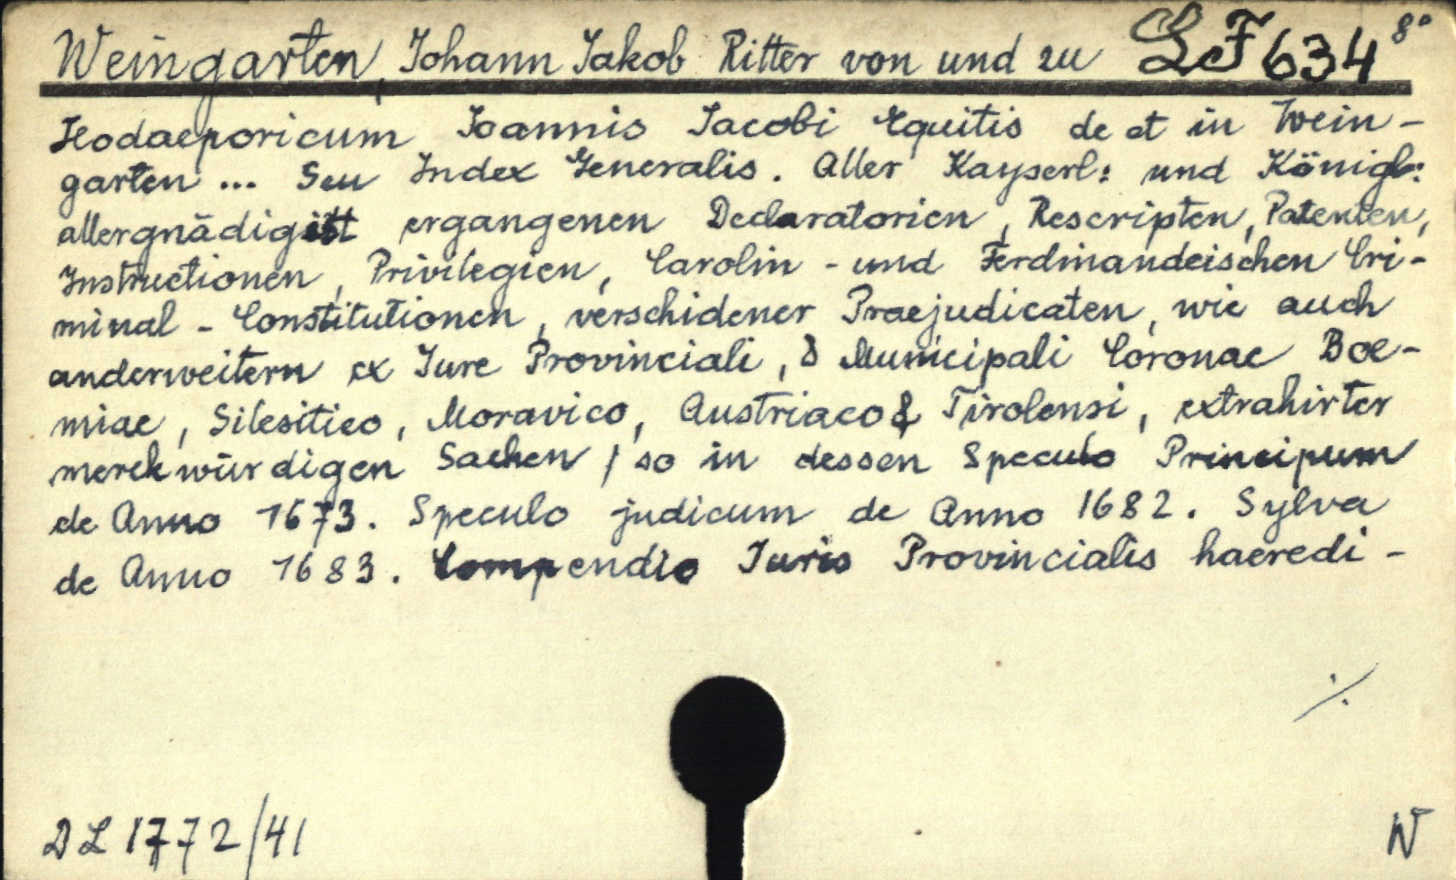 Weingarten, Johann Jakob Ritter von und zu LeF 634 8°
Hodaeporicum Joannis Jacobi Equitis de et in Wein-
garten ... Seu Index Generalis. Aller Kayserl: und Königl:
allergnädigist ergangenen Declaratorien, Rescripten, Patenten,
Instructionen, Privilegien, Carolin - und Ferdinandeischen Cri-
minal - Constitutionen, verschidener Praejudicaten, wie auch
anderweitern ex Jure Provinciali, & Municipali Coronae Boe-
miae, Silesitico, Moravico, Austriaco & Tirolensi, extrahirter
merckwürdigen Sachen / so in dessen Speculo Principum
de Anno 1673. Speculo judicum de Anno 1682. Sylva
de Anno 1683. Compendio Juris Provincialis haeredi-
./.
DL 1772/41 W